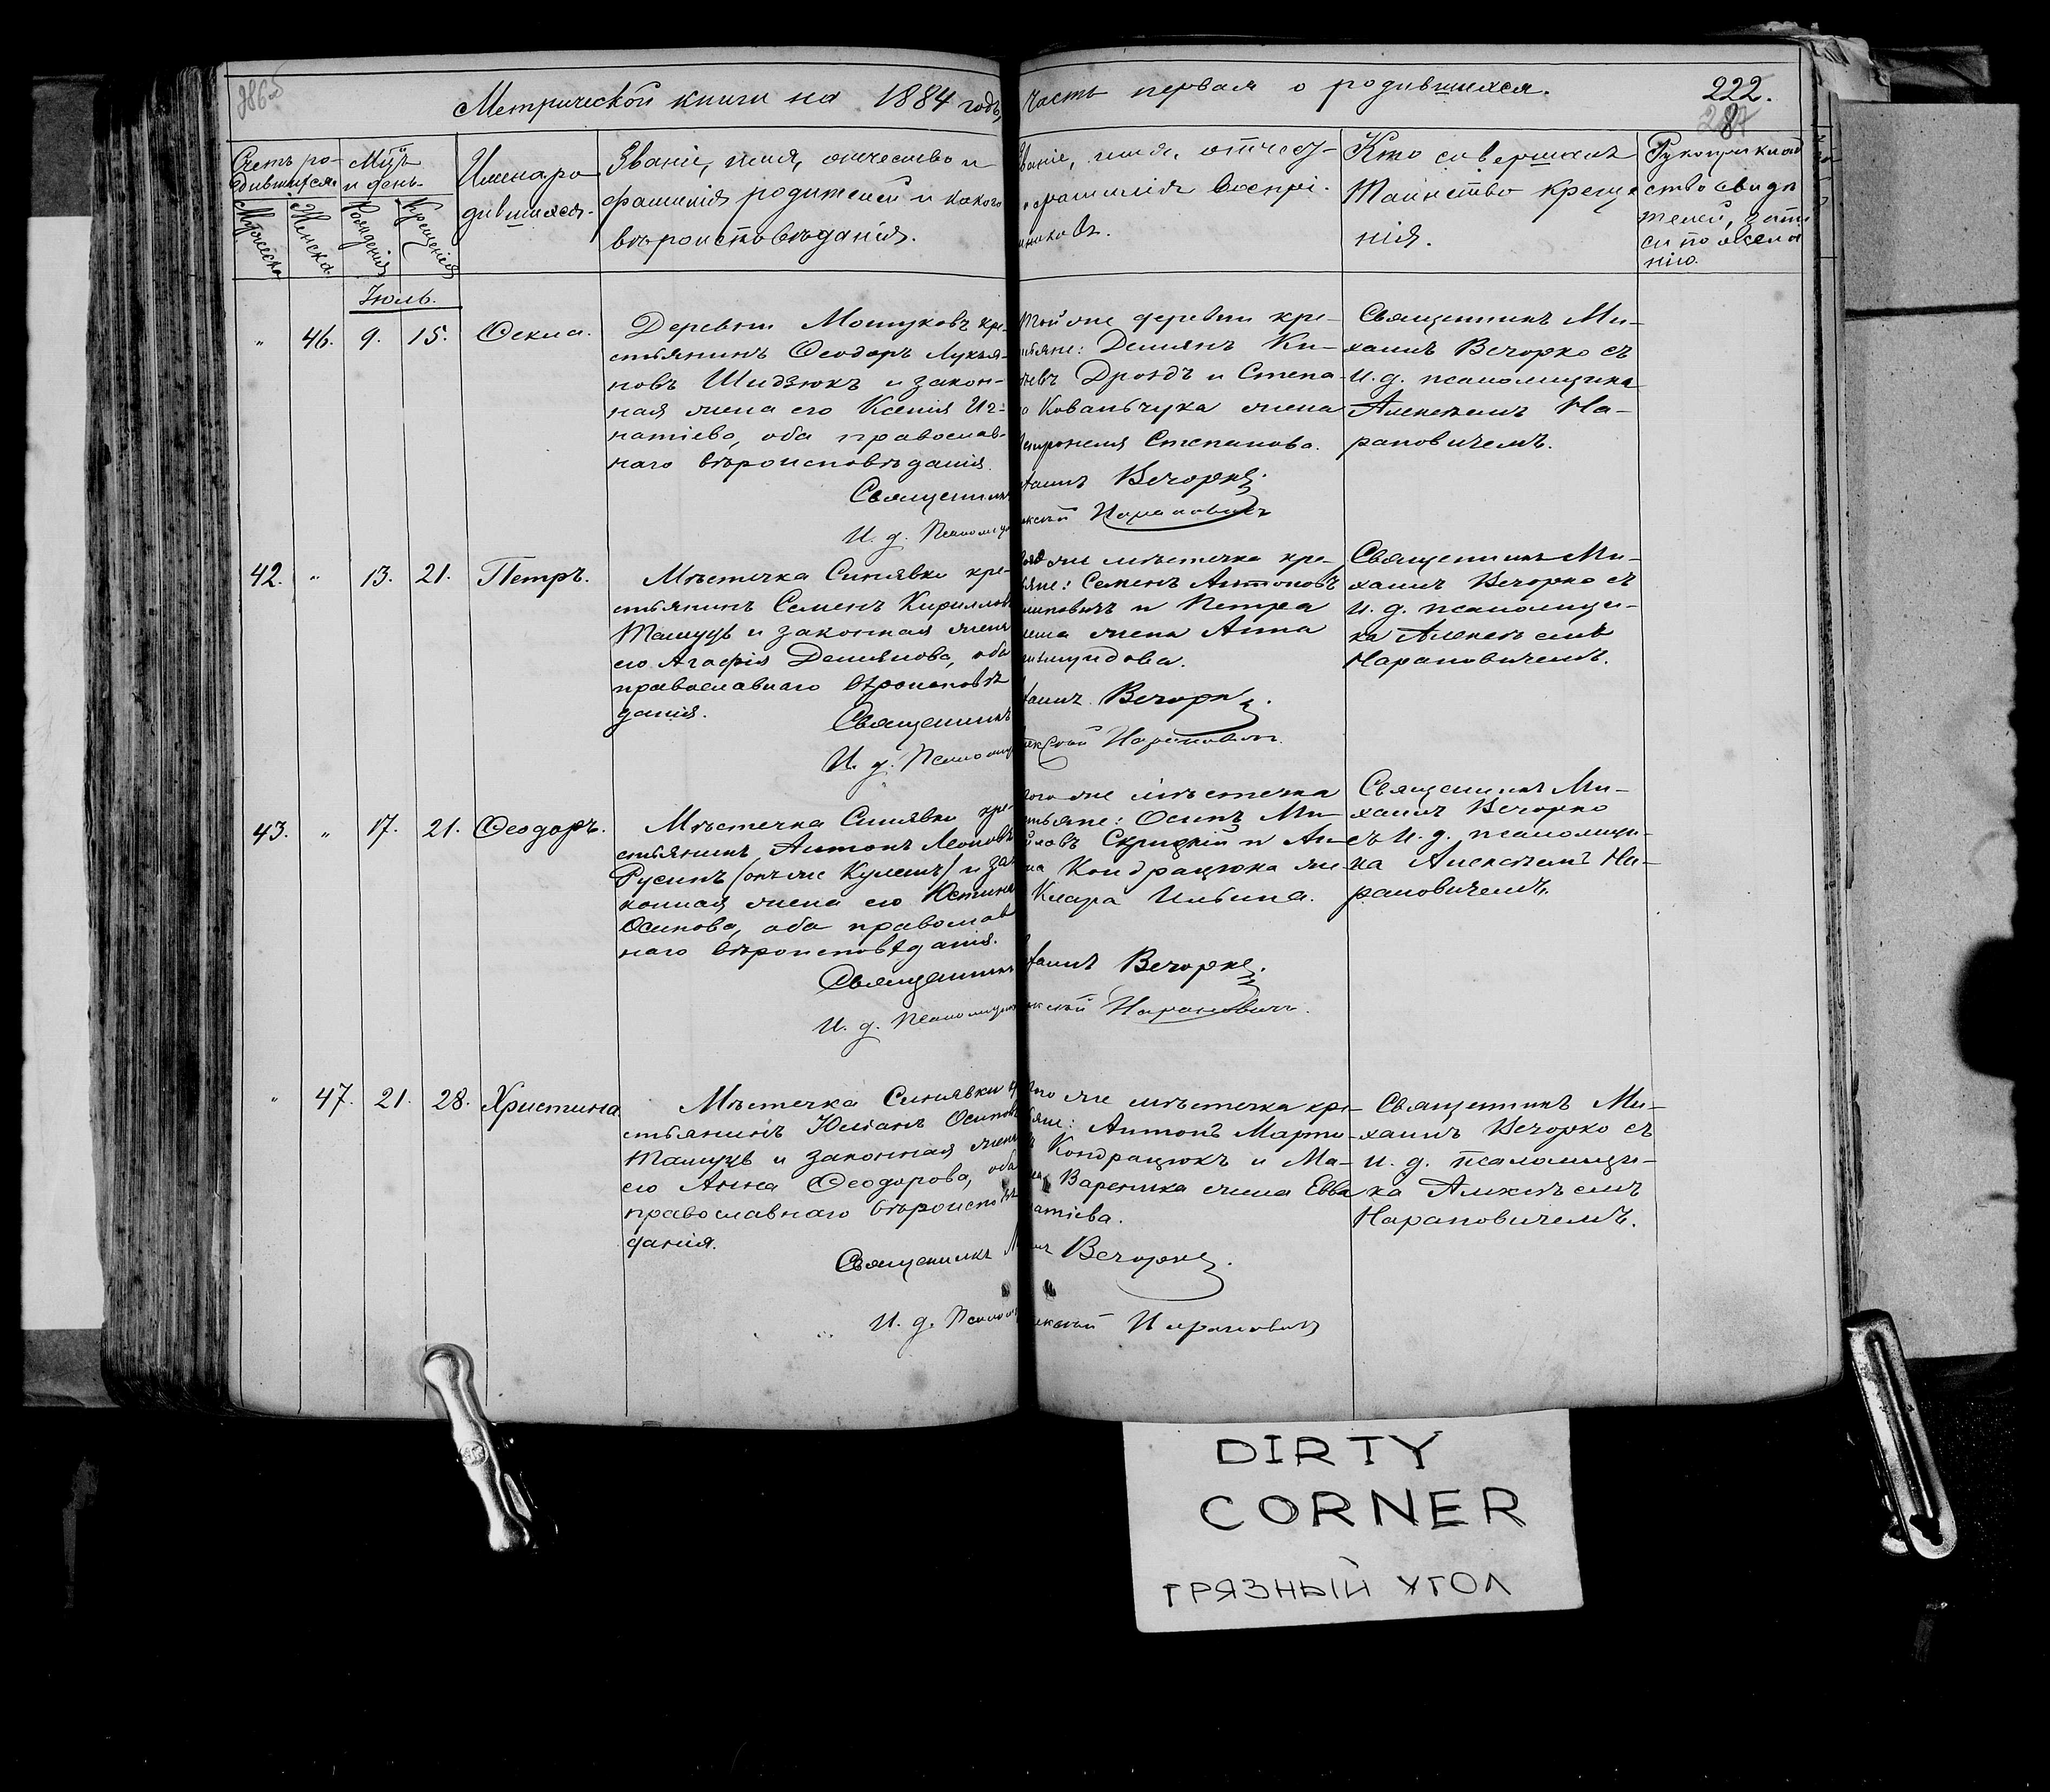 Метрической книги на 1884 годъ, часть первая о родившихся.
222.
Счетъ родившихся.
Мужеска
Женска.
Мцъ и день
Рожденія
Крещенія
Имена родившихся.
Званіе, имя, отчество и
фамилія родителей и какого
вѣроисповѣданія.
Званіе, имя, отчест-
фамилія воспрі-
никовъ.
Кто совершалъ
таинство креще
нія.
Рукоприклад
ство свидѣ
телей, запи
си по желa
нію.
Іюль.
" 46. 9. 15. Ѳекла.
Деревни Мошуковъ кре-
стьянинъ Ѳеодоръ Лукья-
новъ Шидзюкъ и закон-
ная жена его Ксенія Иг-
натіева, оба православ-
наго вѣроисповѣданія
той же деревни кре-
Деміянъ Ки-
Дроздъ и Степа-
Ковальчука жена
Степанова.
Священникъ Ми-
хаилъ Вечорко съ
и. д. псаломщика
Алексѣемъ На-
рановичемъ.
Священникъ Михаилъ Вечорко.
И. д. Псаломщ Нарановичъ
42. " 13. 21. Петръ.
Мѣстечка Синявки кре-
стьянинъ Семенъ Кириллов
Ташуць и законная жена
его Агафія Деміянова, оба
православнаго вѣроисповѣ
данія.
же мѣстечка кре-
Семенъ Антоновъ
и Петра
жена Анна
Священникъ Ми-
хаилъ Вечорко съ
и. д. псаломщи-
ка Алексѣемъ
Нарановичемъ.
Священникъ Михаилъ Вечорко.
И. д. Псаломщ Нарановичъ.
43. " 17. 21. Ѳеодоръ.
Мѣстечка Синявки кре-
стьянинъ Антонъ Леоновъ
Русинъ (онъ же Кулешъ) и за-
конная жена его Юстина
Осипова, оба православ
наго вѣроисповѣданія.
того же мѣстечка
Осипъ Ми-
Скрицкій и Ан-
Кондрацюка же-
Клара Ильина.
Священникъ Ми-
хаилъ Вечорко
съ и. д. псаломщи-
ка Алексѣемъ На-
рановичемъ.
Священникъ Михаилъ Вечорко.
И. д. Псаломщик Нарановичъ.
" 47. 21. 28. Христина
Мѣстечка Синявки
стьянинъ Юліанъ Осипов
Ташуць и законная жена
его Анна Ѳеодорова, оба
православнаго вѣроисповѣ
данія.
того же мѣстечка кре-
Антонъ Марти-
Кондрацюкъ и Ма-
Вареника жена Евва
Священникъ Ми-
хаилъ Вечорко съ
и. д. псаломщи-
ка Алексѣемъ
Нарановичемъ.
Священникъ Вечорко.
И. д. Псаломщ Нарановичъ
DIRTY
CORNER
ГРЯЗНЫЙ УГОЛ